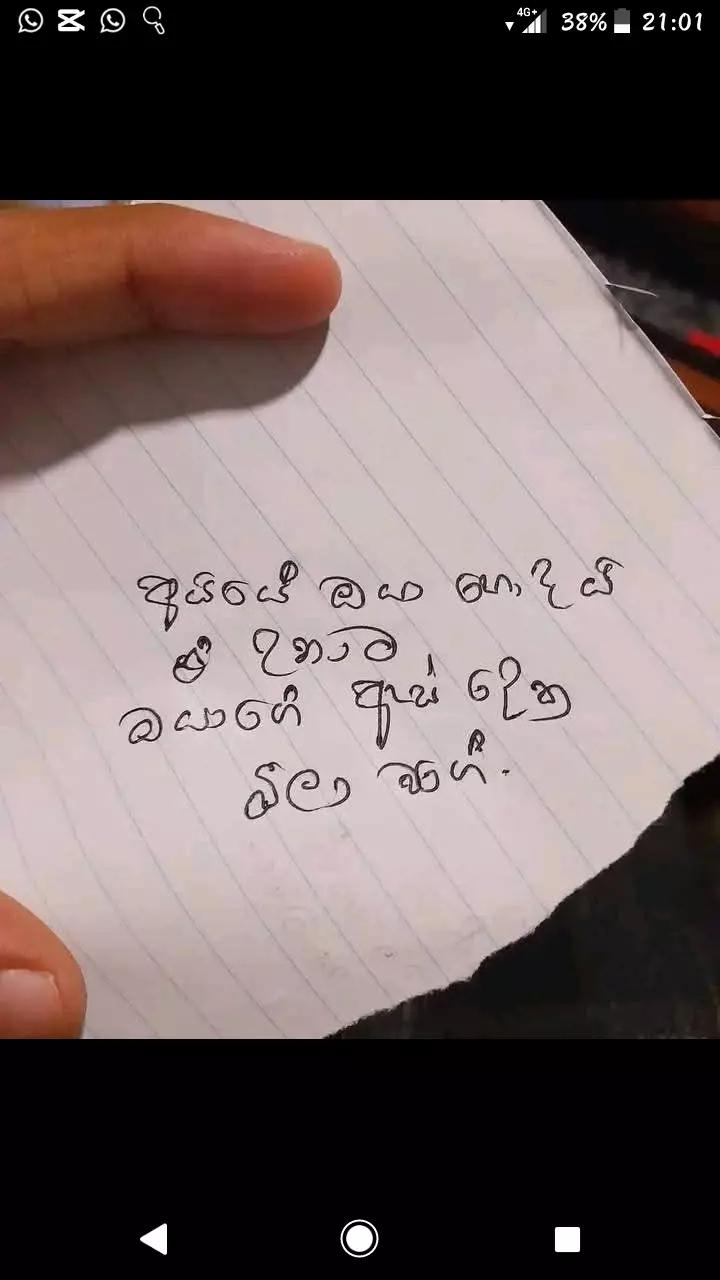 4G+ 38% 21:01
අයියේ ඔයා හොදයි
උනාට
ඔයාගේ ඇස් දෙක
වගේ.